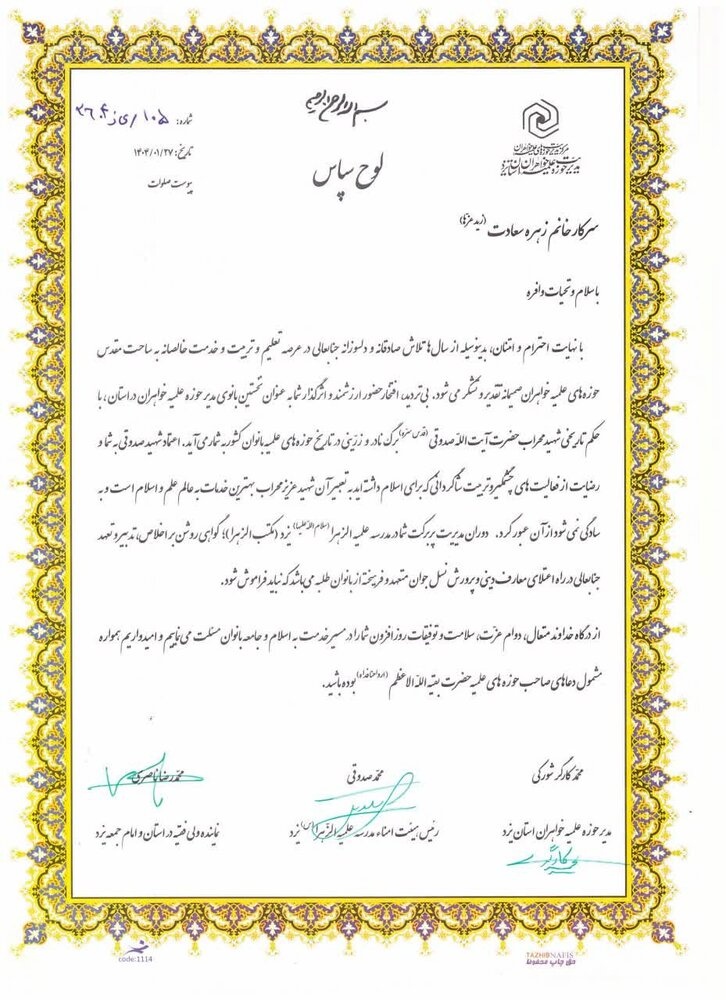 بسم الله الرحمن الرحیم
مرکز مدیریت حوزه‌های علمیه خواهران
مدیریت حوزه علمیه خواهران استان یزد
شماره:
تاریخ: ۱۴۰۴/۰۱/۲۷
پیوست صلوات
لوح سپاس
سرکار خانم زهره سعادت (زید عزها)
با سلام و تحیات وافره
با نهایت احترام و امتنان، بدینوسیله از سال‌ها تلاش صادقانه و دلسوزانه جنابعالی در عرصه تعلیم و تربیت و خدمت خالصانه به ساحت مقدس
حوزه‌های علمیه خواهران صمیمانه تقدیر و تشکر می شود. بی تردید، افتخار حضور ارزشمند و اثرگذار شما به عنوان نخستین بانوی مدیر حوزه علمیه خواهران در استان، با
حکم تاریخی شهید محراب حضرت آیت الله صدوقی (قدس سره) برگ نادر و زرینی در تاریخ حوزه های علمیه بانوان کشور به شمار می آید. اعتماد شهید صدوقی به شما و
رضایت از فعالیت های چشمگیر و تربیت شاگردانی که برای اسلام داشته اید به تعبیر آن شهید عزیز محراب بهترین خدمات به عالم علم و اسلام است و به
سادگی نمی شود از آن عبور کرد. دوران مدیریت پربرکت شما در مدرسه علمیه الزهرا (سلام الله علیها) یزد (مکتب الزهرا)؛ گواهی روشن بر اخلاص، تدبیر و تعهد
جنابعالی در راه اعتلای معارف دینی و پرورش نسل جوان متعهد و فرهیخته از بانوان طلبه می باشد که نباید فراموش شود.
از درگاه خداوند متعال، دوام عزت، سلامت و توفیقات روزافزون شما را در مسیر خدمت به اسلام و جامعه بانوان مسئلت می نماییم و امیدواریم همواره
مشمول دعاهای صاحب حوزه های علمیه حضرت بقیه الله الاعظم (ارواحنا فداه) بوده باشید.
محمد کارگر شورکی
مدیر حوزه علمیه خواهران استان یزد
محمد صدوقی
رئیس هیئت امناء مدرسه علمیه الزهرا (س) یزد
محمدرضا ناصری
نماینده ولی فقیه در استان و امام جمعه یزد
code:1114
TAZHIBNAFIS
حق چاپ محفوظ